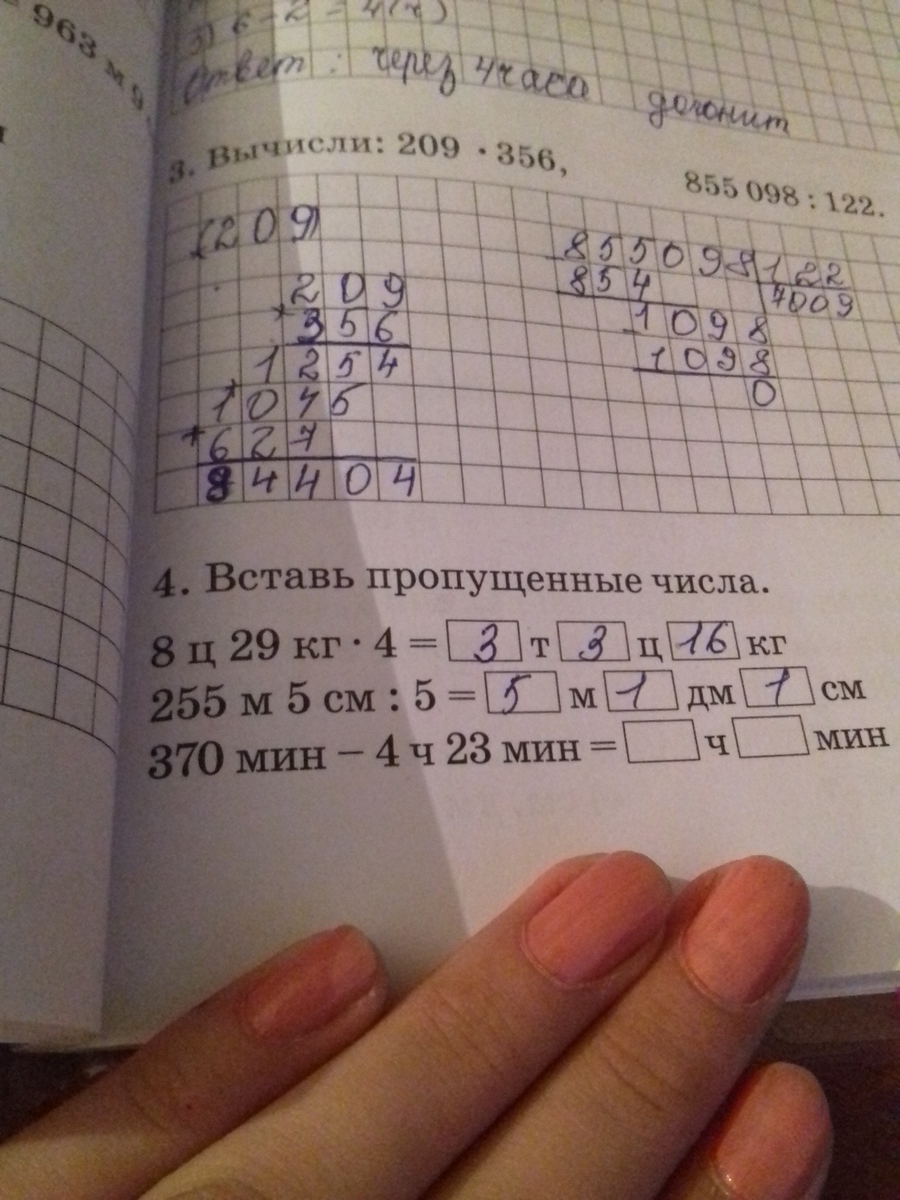 = 963 м 9
3) 6 - 2 = 4 (ч)
Ответ : через 4 часа догонит
3. Вычисли: 209 · 356, 855 098 : 122.
(209)
209
× 356
1254
+ 1045
+ 627
84404
855098 122
854 7009
1098
1098
0
4. Вставь пропущенные числа.
8 ц 29 кг · 4 = 3 т 3 ц 16 кг
255 м 5 см : 5 = 5 м 1 дм 1 см
370 мин – 4 ч 23 мин = ч мин